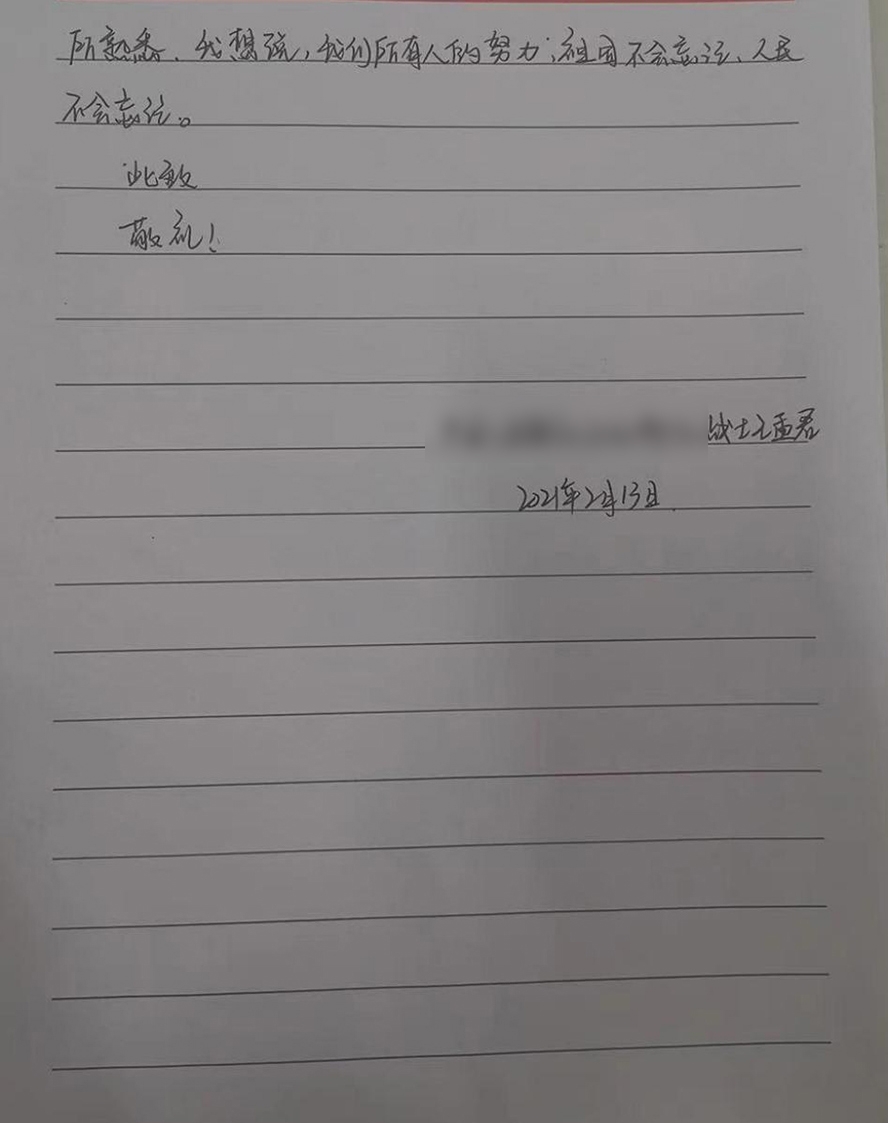 所熟悉、我想说，我们所有人的努力，祖国不会忘记、人民
不会忘记。
此致
敬礼！
战士王孟君
2021年2月13日.